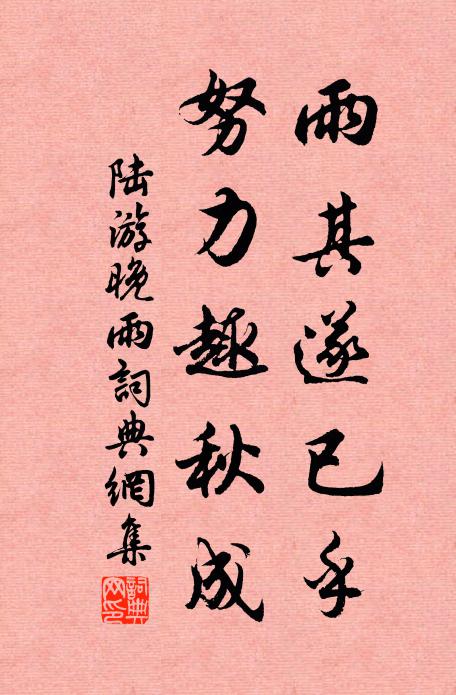 雨其遂已乎
努力趣秋成
陆游晚雨詞典網集
詞典网印